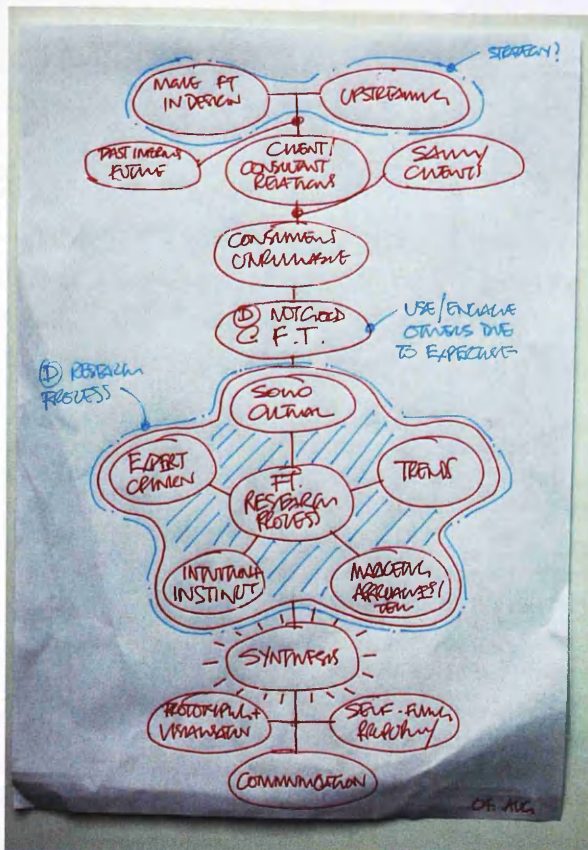 STRATEGY?
MORE FT
IN DESIGN
UPSTREAMING
PAST INFORMS
FUTURE
CLIENT/
CONSULTANT
RELATIONS
SAVVY
CLIENTS
CONSUMERS
UNRELIABLE
D NOT GOOD
@ F.T.
USE/ENGAGE
OTHERS DUE
TO EXPERTISE
D RESEARCH
PROCESS
SOCIO
CULTURAL
EXPERT
OPINION
TRENDS
FT.
RESEARCH
PROCESS
INTUITION+
INSTINCT
MARKETING
APPROACHES/
SYNTHESIS
PROTOTYPING+
VISUALISATION
SELF-FULFILLING
PROPHECY
COMMUNICATION
AUG